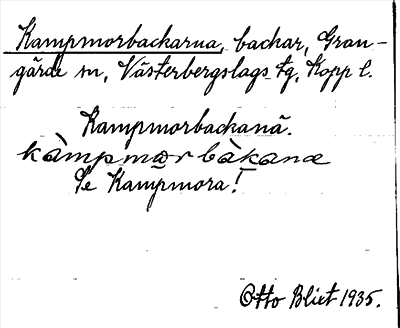 Kampmorbackarna, backar, Gran-
gärde sn, Västerbergslags tg, Kopp l.
Kampmorbackanä.
kàmpmærbàkanæ
Se Kampmora!
Otto Blixt 1935.